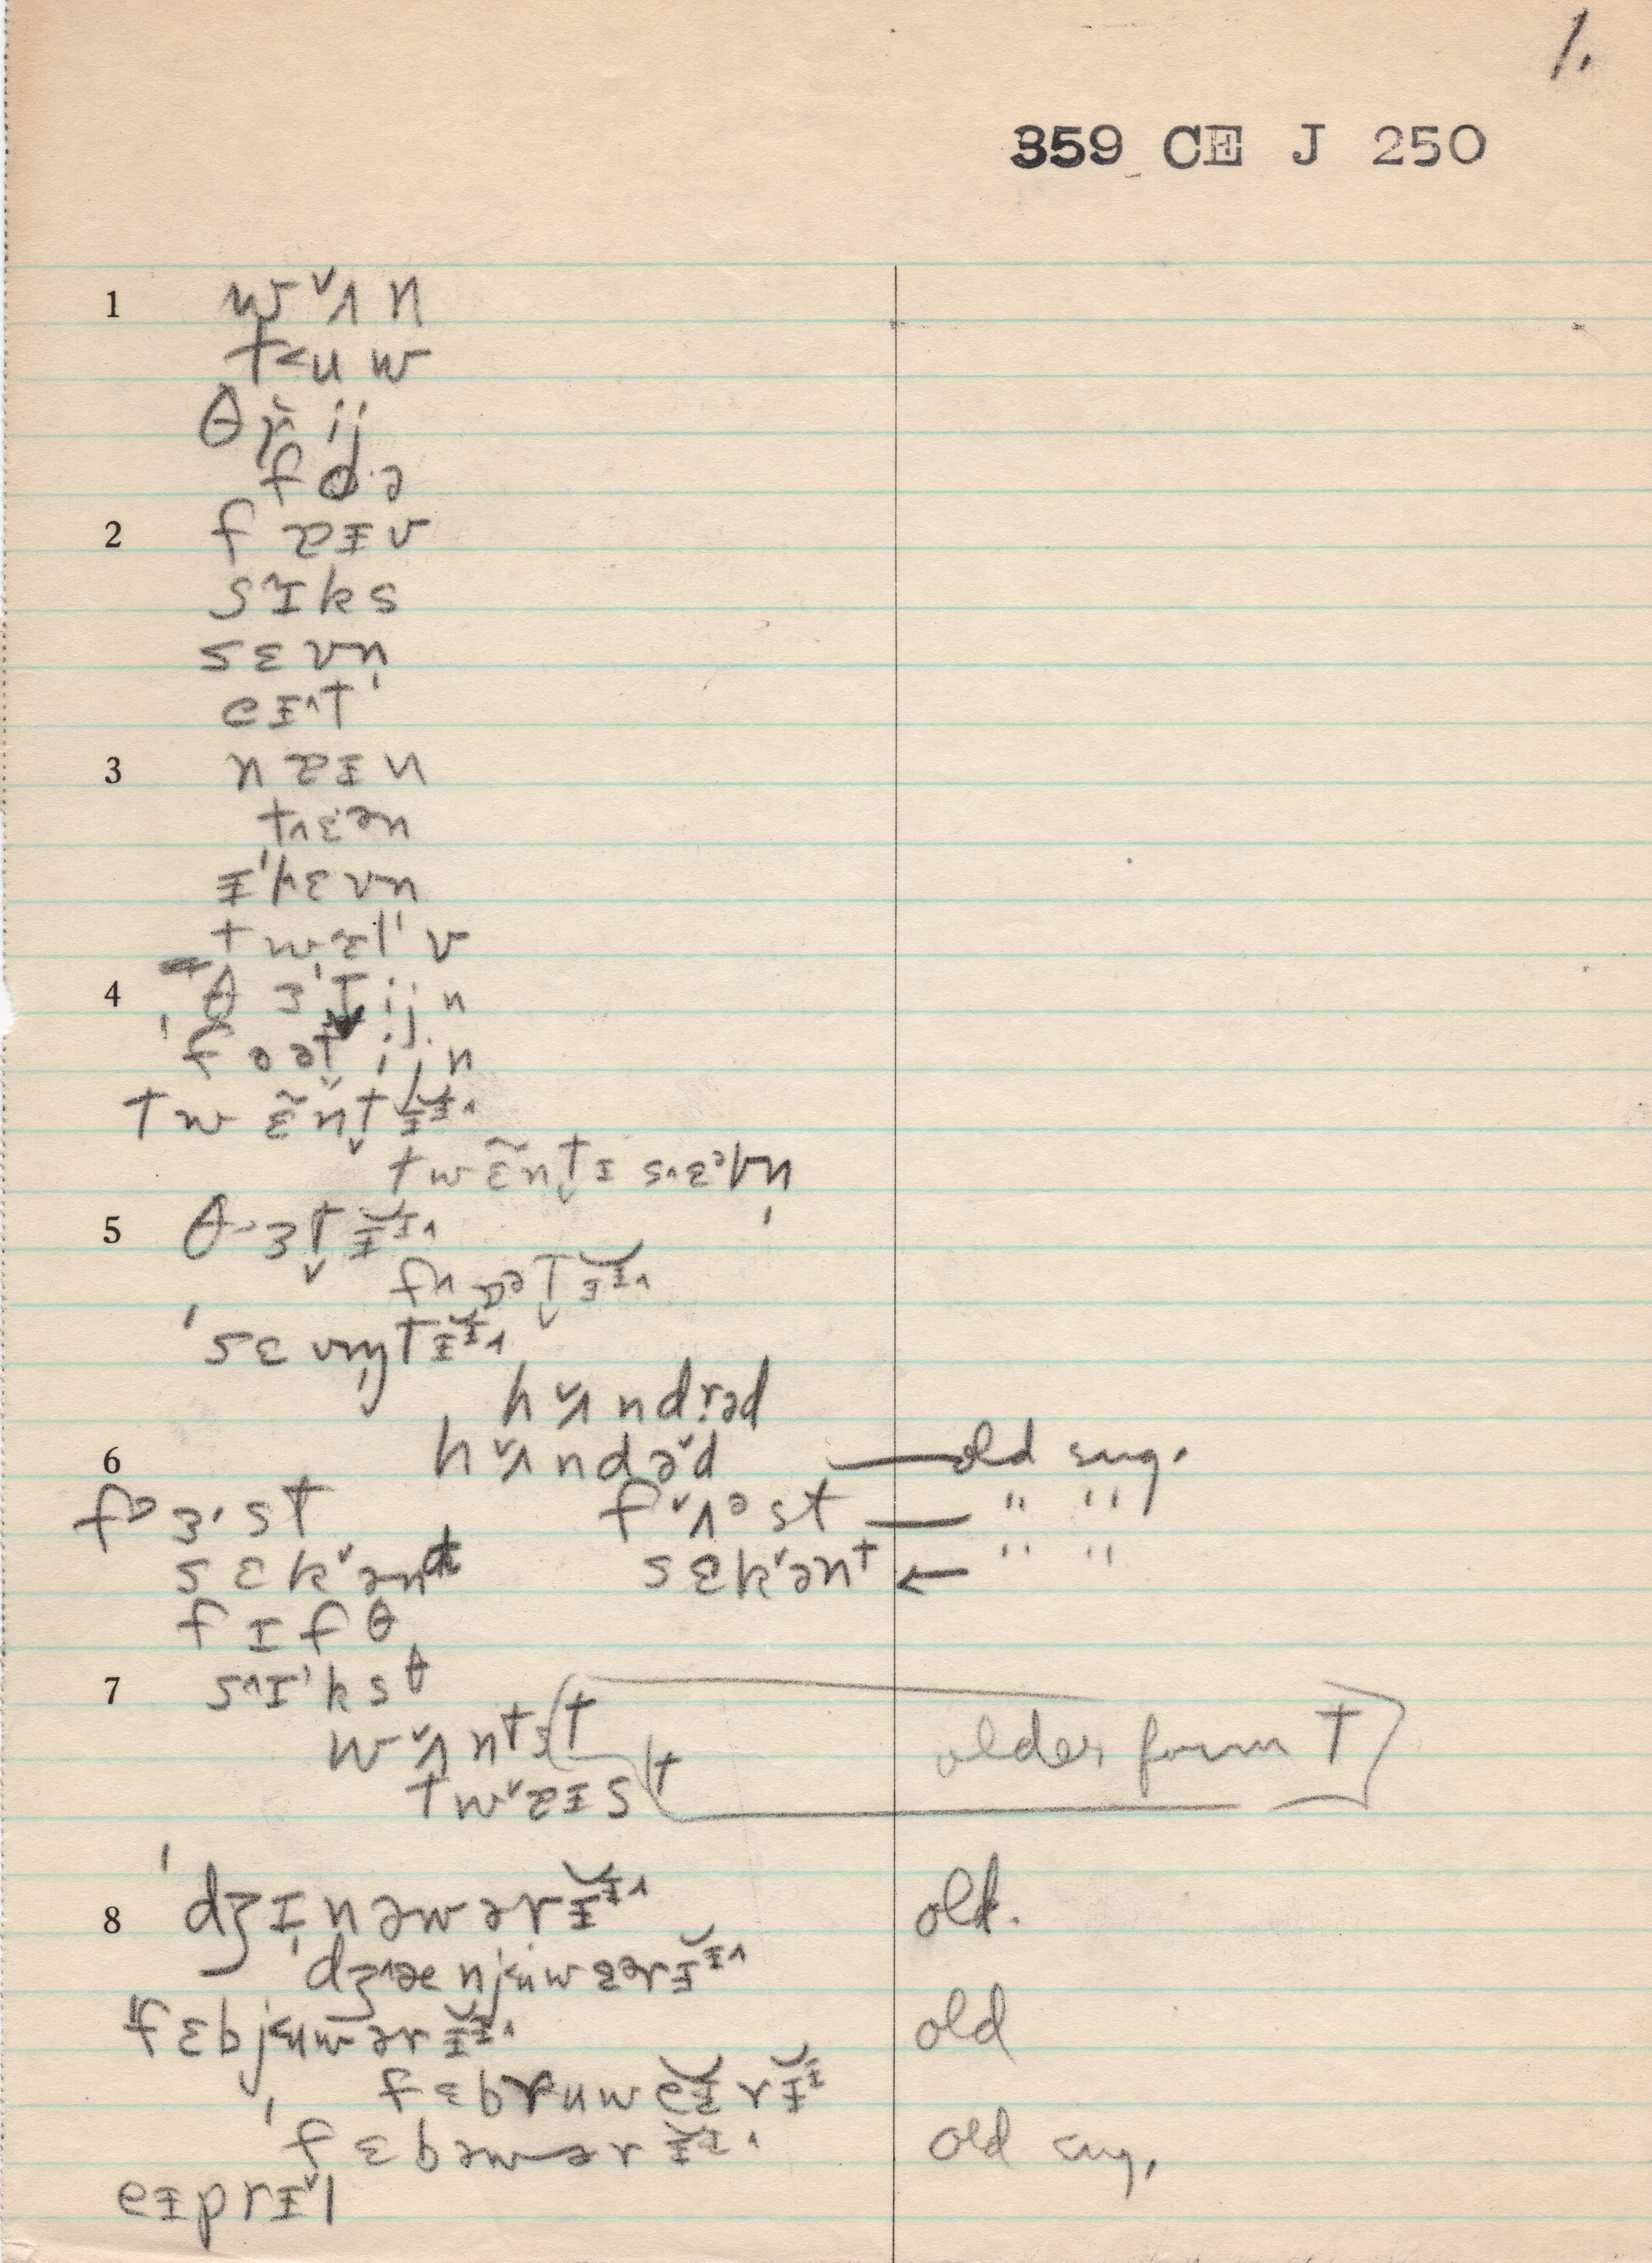 1.
359 CE J 250
1 w ˅ʌ n
t˂u w
θ r̥̆ ij
f o·ə
2 f ɐɪ v
s˄ɪ k s
s ɛ v n̩
e ɪ˄t
3 n ɐɪ n
t˄ɛ·ən
ɪ'lɛ vn
t w ɛl' v
4 'θ ɜ't̬ ij n
'f o ət̬ ij n
t w ɛ̃ n̆t̬ ɪ̆ɪ˄
t w ɛ̃ n t̬ ɪ s˄ɛᵊvn̩
5 θ ɜt̬ ɪ̆ɪ˄
f˄ ɒᵊt̬ ɪ̆ɪ˄
'sɛ vn̩t ɪ̆ɪ˄
h ˅ʌ n d rəd
6 h ˅ʌ n d ə˅d — old sug.
fᵊ ɜ· s t f ˅ʌᵊ s t — " "
s ɛ k˅ənd s ɛ k˅ənt ← " "
f ɪ f θ
7 s˄ɪ'k sθ
w ˅ʌ nts(t
t w˅ɐɪ s(t older form t]
8 'dʒɪ n əw ər ɪ̆ɪ˄ old.
'dʒ˄æ nj˂uw ɛər ɪ̆ɪ˄
'f ɛbj˂uw ər ɪ̆ɪ˄ old
'f ɛbruw ĕɪ r ɪ̆ɪ
'f ɛ b əw ər ɪ̆ɪ˄ old sug.
eɪprɪ˅l